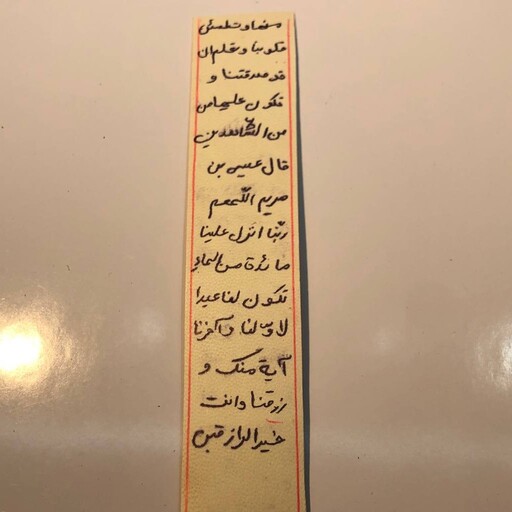 منها و تطمئن
قلوبنا و نعلم ان
قد صدقتنا و
نكون عليها من
من الشاهدين
قال عيسى بن
مريم اللهم
ربّنا انزل علينا
مائدة من السماء
تكون لنا عيدا
لاوّلنا و آخرنا
آية منك و
ارزقنا وانت
خير الرازقين